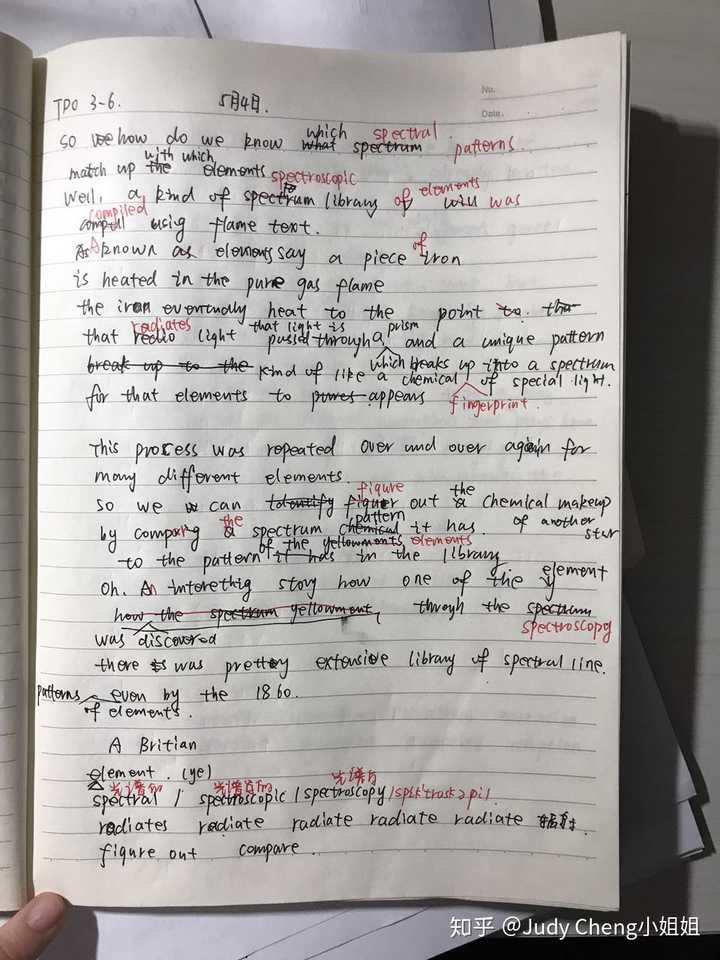 No.
Date.
TPO 3-6. 5月4日.
so we how do we know which what spectrum spectral patterns.
match up with which the elements
Well, a kind of spectrum spectroscopic library of elements will was
compiled using flame text.
As A known as elements say a piece of iron
is heated in the pure gas flame
the iron eventually heat to the point to. the
that radiates redio light that light is passed through a prism and a unique pattern
break up to the kind of like a chemical which breaks up into a spectrum
for that elements to appears fingerprint. of special light.
This process was repeated over and over again for
many different elements.
so we can identify figure figuer out the a chemical makeup
by comparing the a spectrum chemical pattern it has. of another star
to the pattern it has of the yellowments elements in the library
Oh. An interethig story how one of the element
how the spectrum yellowment, through the spectrum spectroscopy
was discovered
there is was pretty extensive library of spectral line.
patterns of elements. even by the 1860.
A Britian
element. (ye)
光谱的 光谱学的 光谱学
spectral / spectroscopic / spectroscopy
radiates radiate radiate radiate radiate
figure out compare.
知乎 @Judy Cheng小姐姐